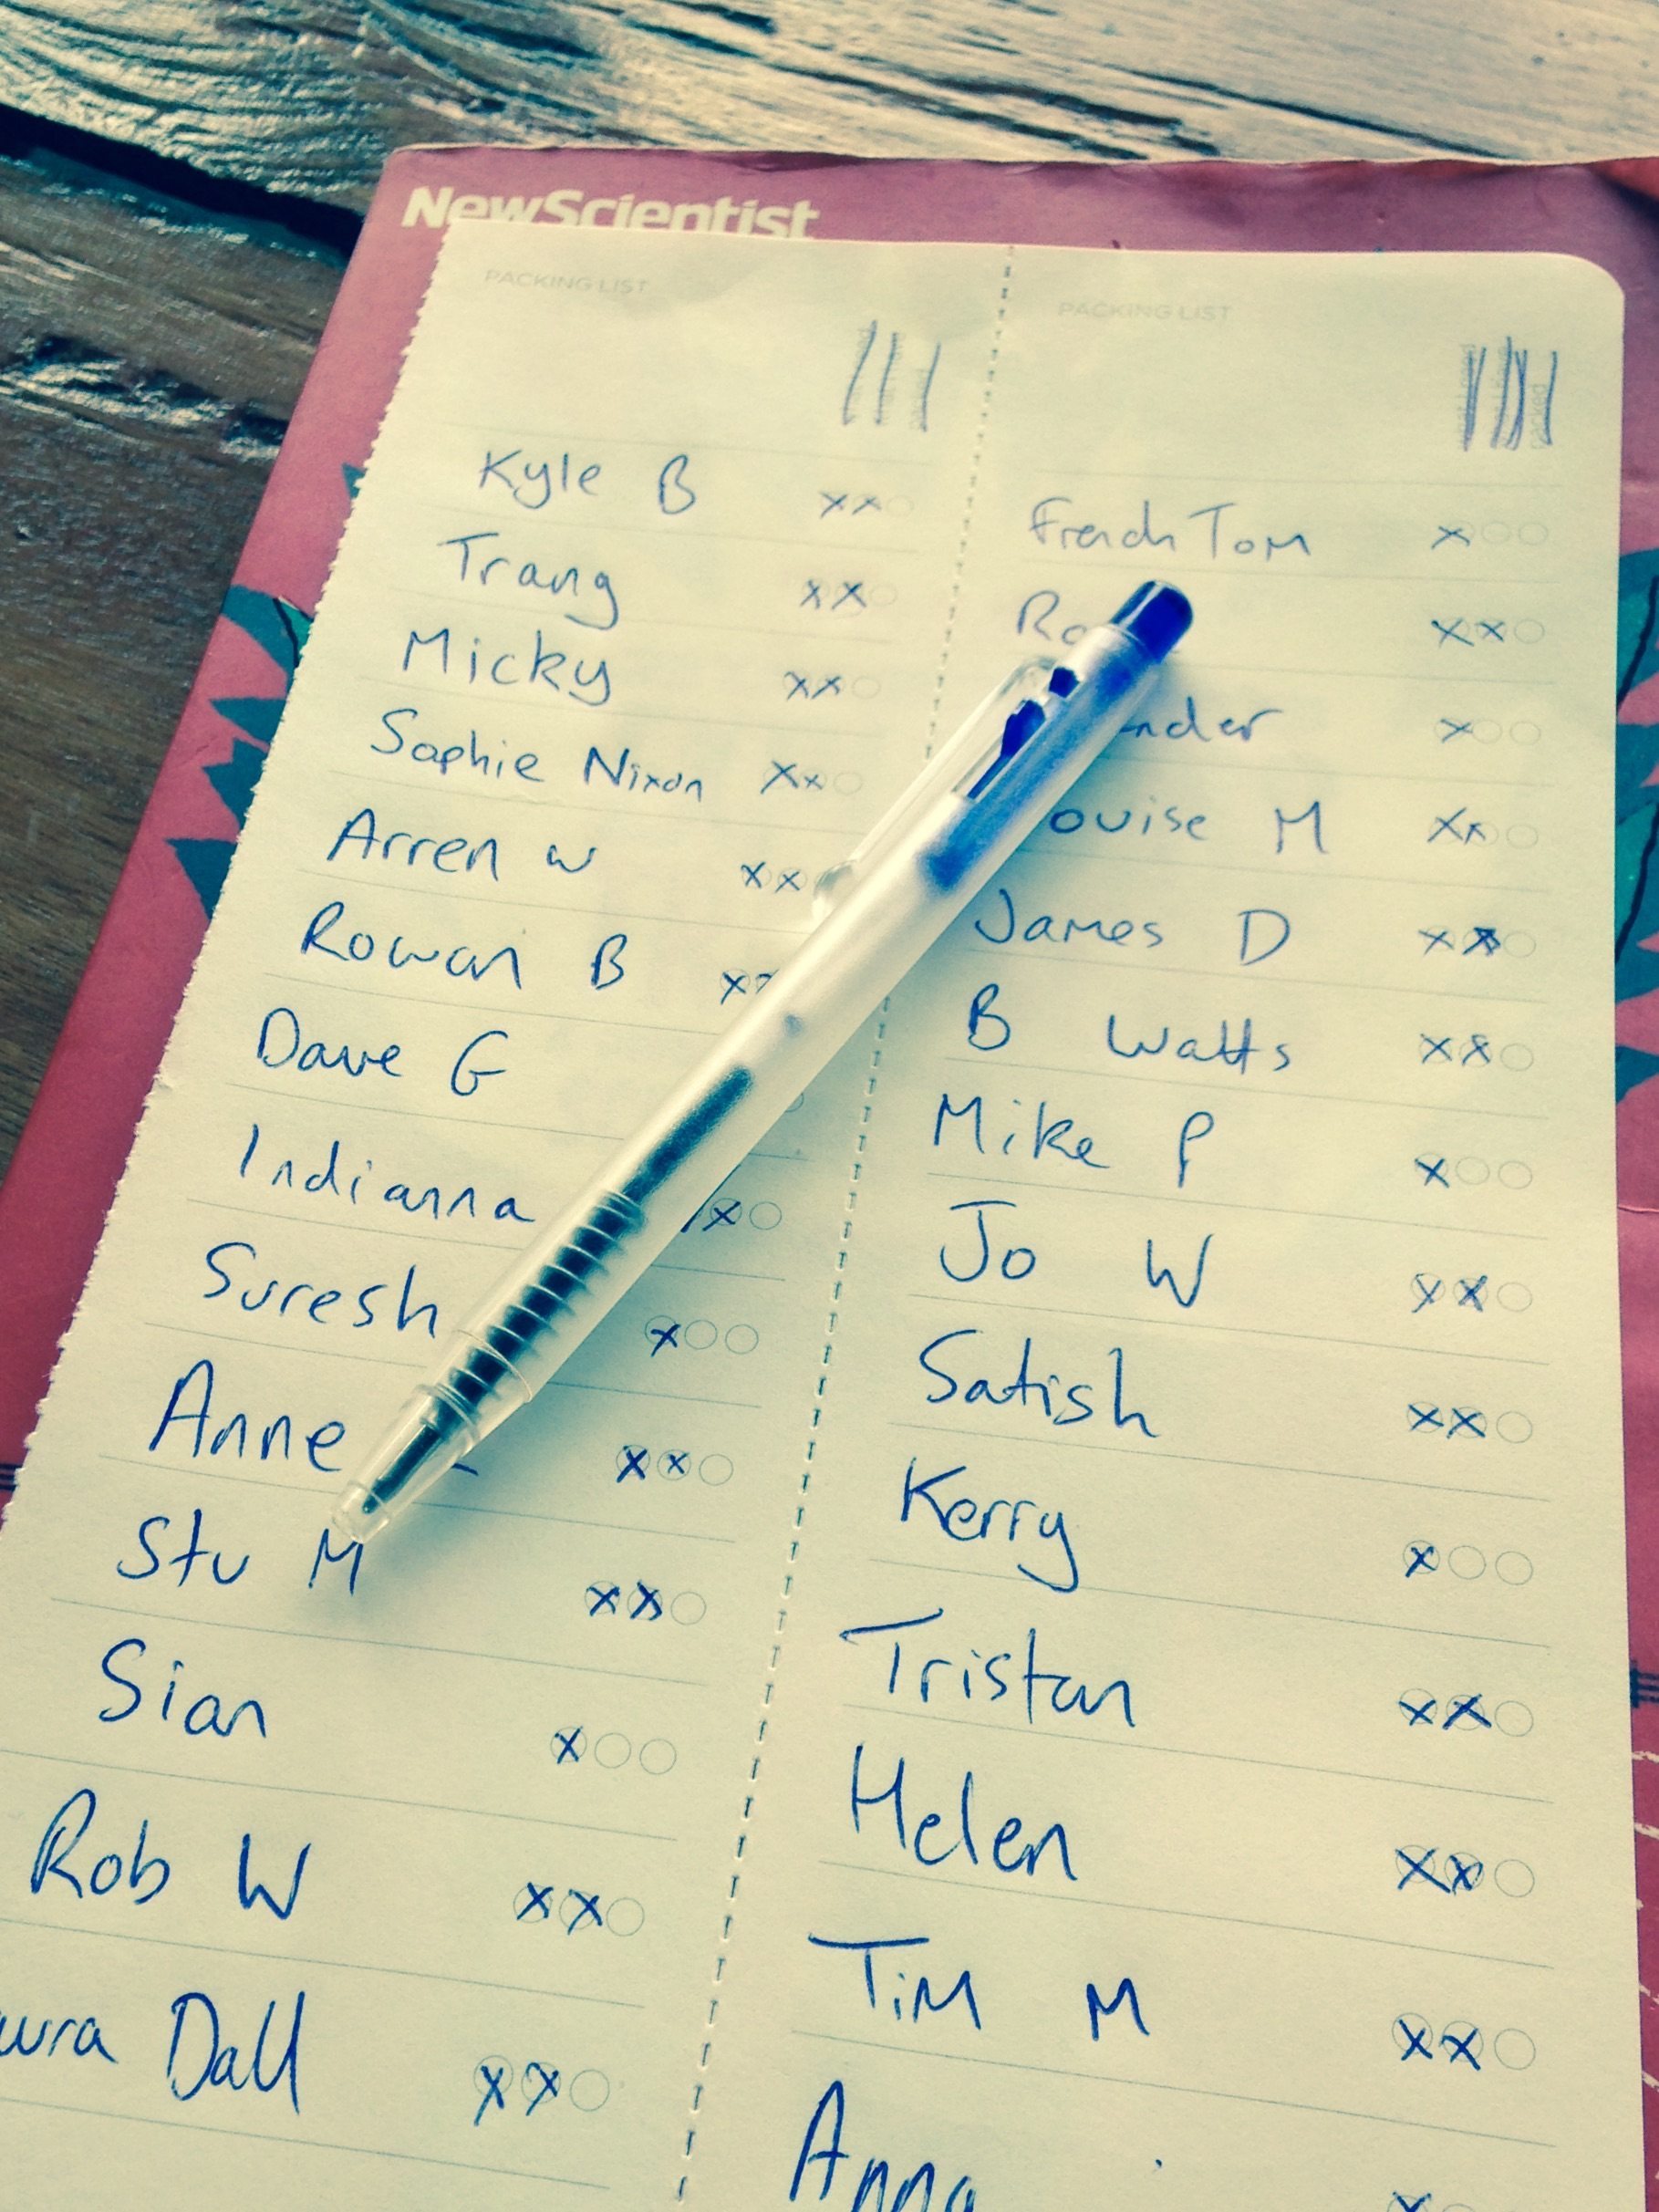 NewScientist
PACKING LIST
Kyle B xx
Trang xx
Micky xx
Sophie Nixon xx
Arren W xx
Rowan B x
Dave G
Indianna x
Suresh x
Anne xx
Stu M xx
Sian x
Rob W xx
Dall xx
PACKING LIST
French Tom x
xx
x
M xx
James D xx
B Watts xx
Mike P x
Jo W xx
Satish xx
Kerry x
Tristan xx
Helen xx
Tim M xx
Anna